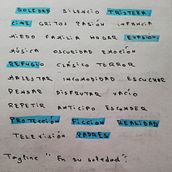 SOLEDAD SILENCIO TRISTEZA
CINE GRITOS PASIÓN INFANCIA
MIEDO FAMILIA HOGAR EVASIÓN
MÚSICA OSCURIDAD EMOCIÓN
REFUGIO CLÁSICO TERROR
MALESTAR INCOMODIDAD ESCUCHAR
PENSAR DISFRUTAR VACÍO
REPETIR ANTICIPO ESCONDER
PROTECCIÓN FICCION REALIDAD
TELEVISIÓN PADRES
Tagline " En su soledad".